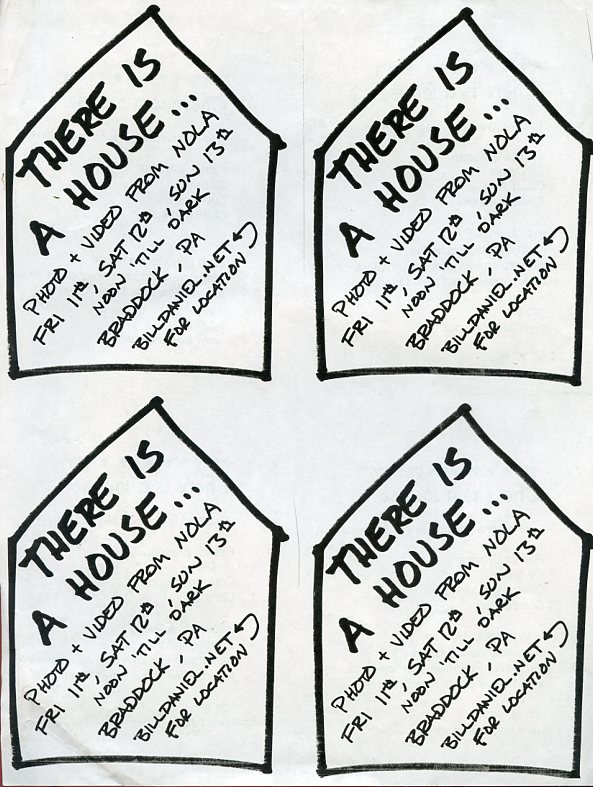 THERE IS
A HOUSE...
PHOTO + VIDEO FROM NOLA
FRI 11th, SAT 12th SUN 13th
NOON 'TILL DARK
BRADDOCK, PA
BILLDANIEL.NET
FOR LOCATION
THERE IS
A HOUSE...
PHOTO + VIDEO FROM NOLA
FRI 11th, SAT 12th SUN 13th
NOON 'TILL DARK
BRADDOCK, PA
BILLDANIEL.NET
FOR LOCATION
THERE IS
A HOUSE...
PHOTO + VIDEO FROM NOLA
FRI 11th, SAT 12th SUN 13th
NOON 'TILL DARK
BRADDOCK, PA
BILLDANIEL.NET
FOR LOCATION
THERE IS
A HOUSE...
PHOTO + VIDEO FROM NOLA
FRI 11th, SAT 12th SUN 13th
NOON 'TILL DARK
BRADDOCK, PA
BILLDANIEL.NET
FOR LOCATION